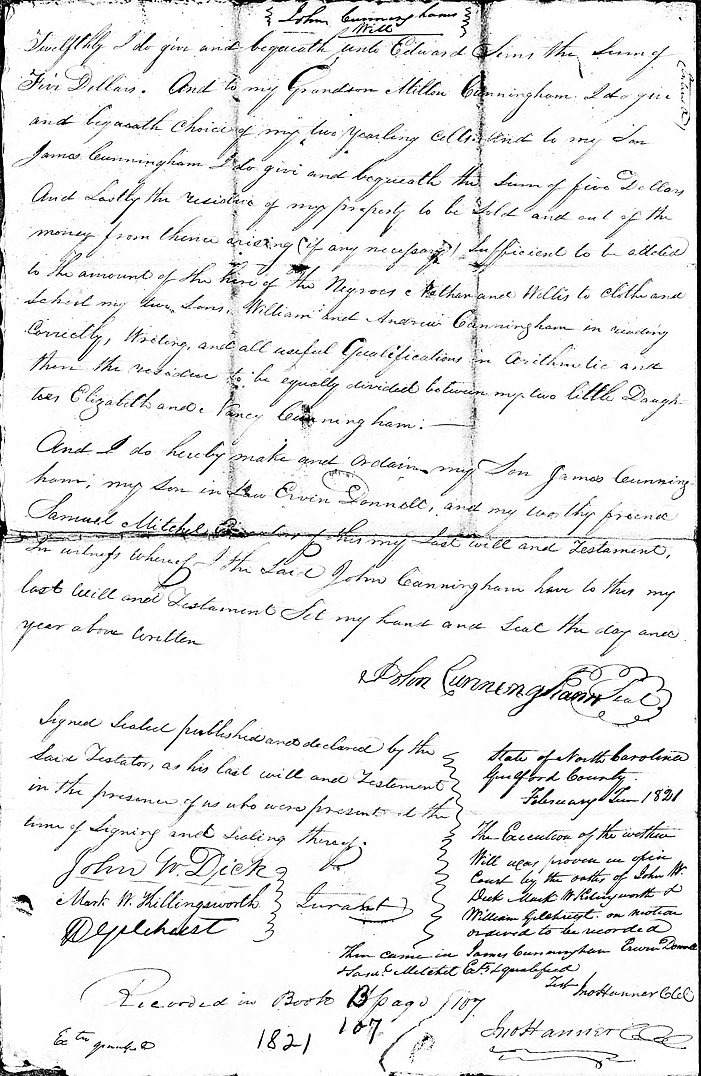 John Cunninghams
Will
Twelfthly I do give and bequeath unto Edward Sims the Sum of
Five Dollars. And to my Grandson Milton Cunningham I do give
and bequeath choice of my two Yearling Colts. And to my Son
James Cunningham I do give and bequeath the Sum of five Dollars
And Lastly the residue of my property to be Sold and out of the
money from thence arising (if any necessary) Sufficient to be added
to the amount of the hire of the Negroes Nathan and Willis to Clothe and
School my two Sons, William and Andrew Cunningham in reading
Correctly, Writing, and all useful Qualifications in Arithmetic and
then the residue to be equally divided between my two little Daugh-
ters Elizabeth and Nancy Cunningham:—
And I do hereby make and ordain my Son James Cunning-
ham, my Son in Law Ervin Donnell, and my worthy friend
Samuel Mitchel Executors of this my Last will and Testament,
In witness whereof I the Said John Cunningham have to this my
last Will and Testament Set my hand and Seal the day and
year above written
John Cunningham Seal
Signed Sealed published and declared by the
Said Testator, as his last will and Testament
in the presence of us who were present at the
time of Signing and Sealing thereof.
John W. Dick
Mark W. Killingsworth Jurant
State of North Carolina
Guilford County
February Term 1821
The Execution of the within
Will was proven in open
Court by the oaths of John W.
Dick Mark W. Kilingsworth &
William Gilchrist on motion
ordered to be recorded
Then came in James Cunningham Erwin Donnell
& Saml. Mitchel Exrs & qualified
Test Jno Hanner CCC
Recorded in Book B page 107
107
Extrs qualified
1821
Jno Hanner CCC